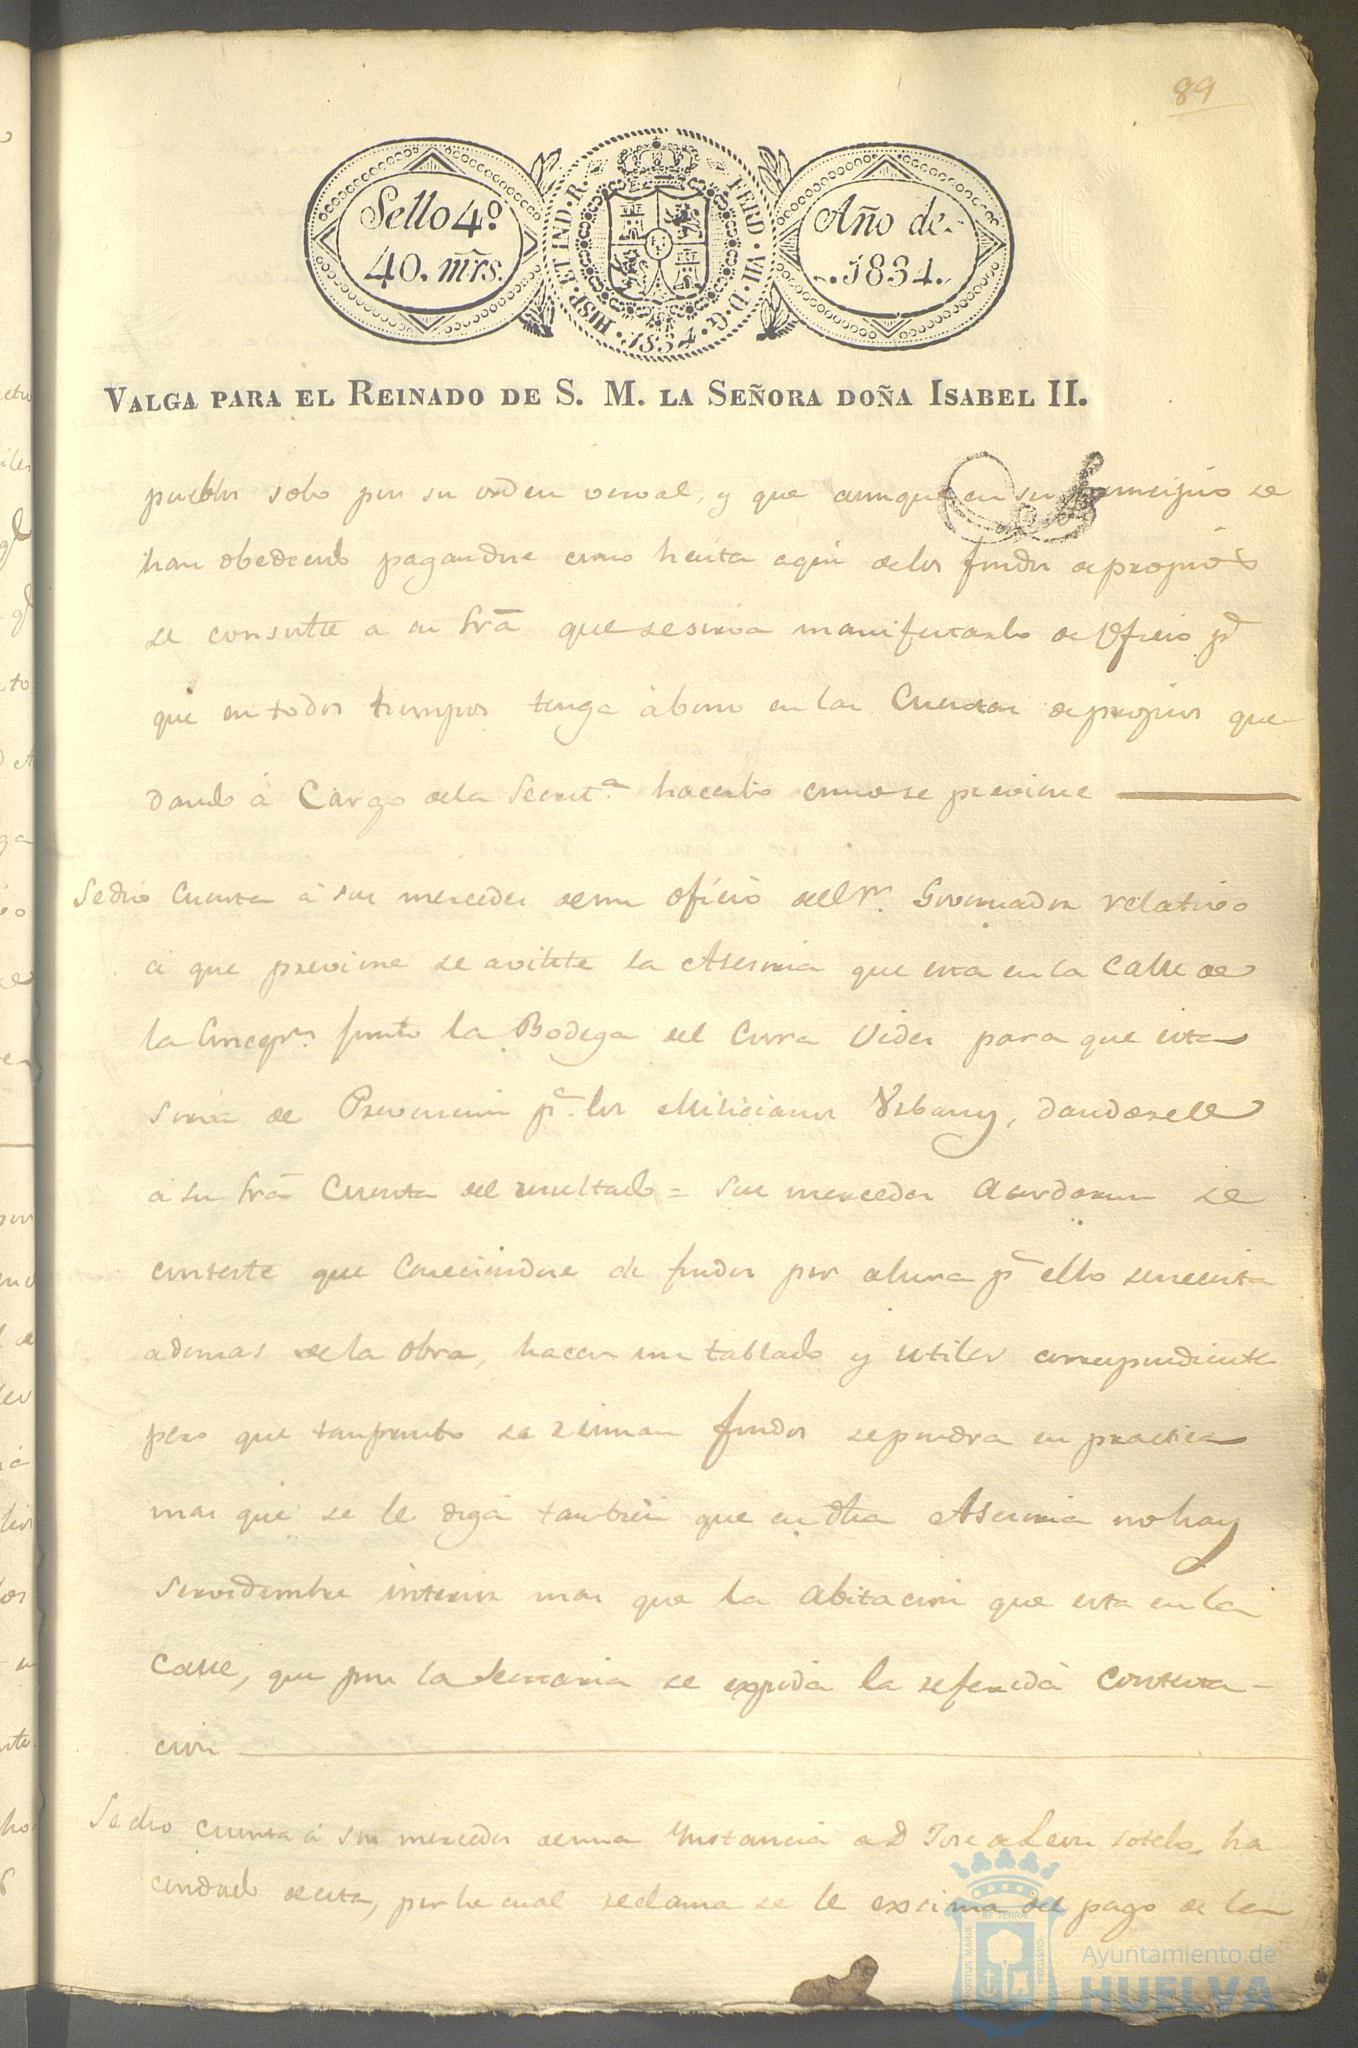 89
Sello 4º
40. mrs.
HISP. ET IND. R. FERD. VII. D. G. 1834.
Año de
1834.
VALGA PARA EL REINADO DE S. M. LA SEÑORA DOÑA ISABEL II.
pueblos solo por su orden verval, y que aunque en su principio se
han obedecido pagandose como hasta aqui delos fondos depropios
se consulte a su Sria que sesirva manifestarlo de Oficio pa
que en todos tiempos tenga abono en las Cuentas depropios que
dando á Cargo dela Secret.a hacerlo comose previene
Sedio Cuenta á sus mercedes deun oficio delSr. Governador relativo
a que previene se avilite la Asesoria que esta en la Calle de
la Concepn. junto la Bodega del Cura Vides para que esta
sirva de Prevencion pa. los Milicianos Urbanos, dandosele
á su Sria Cuenta del resultado = sus mercedes acordaron se
conteste que Careciendose de fondos por ahora pa ello senecesita
ademas dela obra, hacer un tablado y utiles correspondientes
pero que tanpronto se reunan fondos sepondra en practica
mas que se le diga tambien que en dha Asesoria no hay
servidumbre interior mas que la abitacion que esta en la
Calle, que por la Secretaria se expida la referida contesta-
cion
Se dio cuenta á sus mercedes deuna Ynstancia de D Jose de Leon Sotelo, ha
cendado deesta, por la cual reclama se le exsima del pago de las
PORTUS MARIS ET TERRAE CUSTODIA
Ayuntamiento de
HUELVA